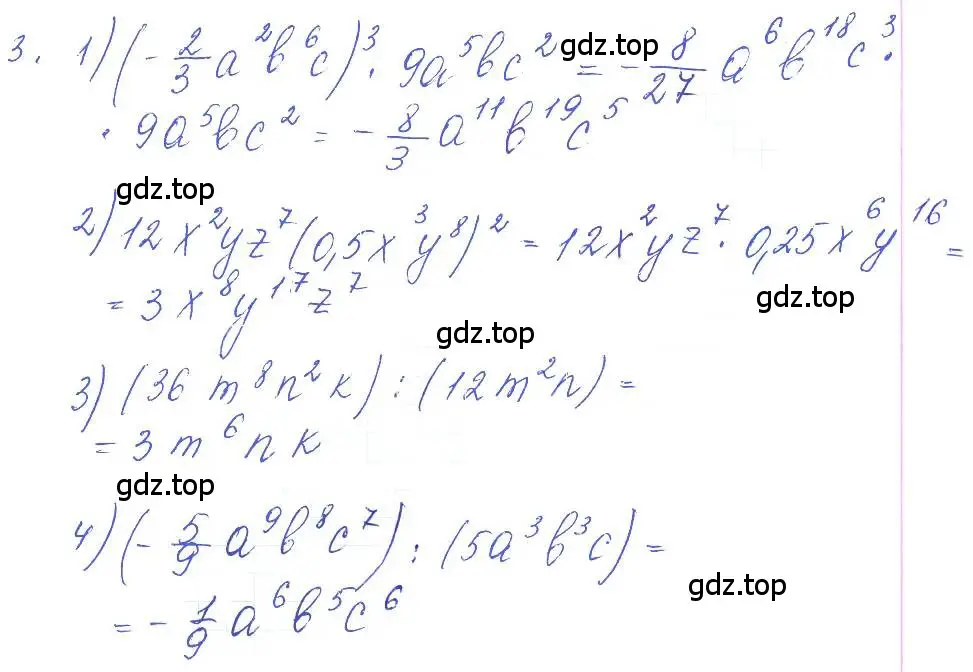 3. 1) (-2/3 a²b⁶c)³ · 9a⁵bc² = -8/27 a⁶b¹⁸c³ ·
gdz.top
· 9a⁵bc² = -8/3 a¹¹b¹⁹c⁵
gdz.top
2) 12x²yz⁷(0,5x³y⁸)² = 12x²yz⁷ · 0,25x⁶y¹⁶ =
= 3x⁸y¹⁷z⁷
gdz.top
gdz.top
3) (36m⁸n²k) : (12m²n) =
= 3m⁶nk
gdz.top
4) (-5/9 a⁹b⁸c⁷) : (5a³b³c) =
gdz.top
= -1/9 a⁶b⁵c⁶